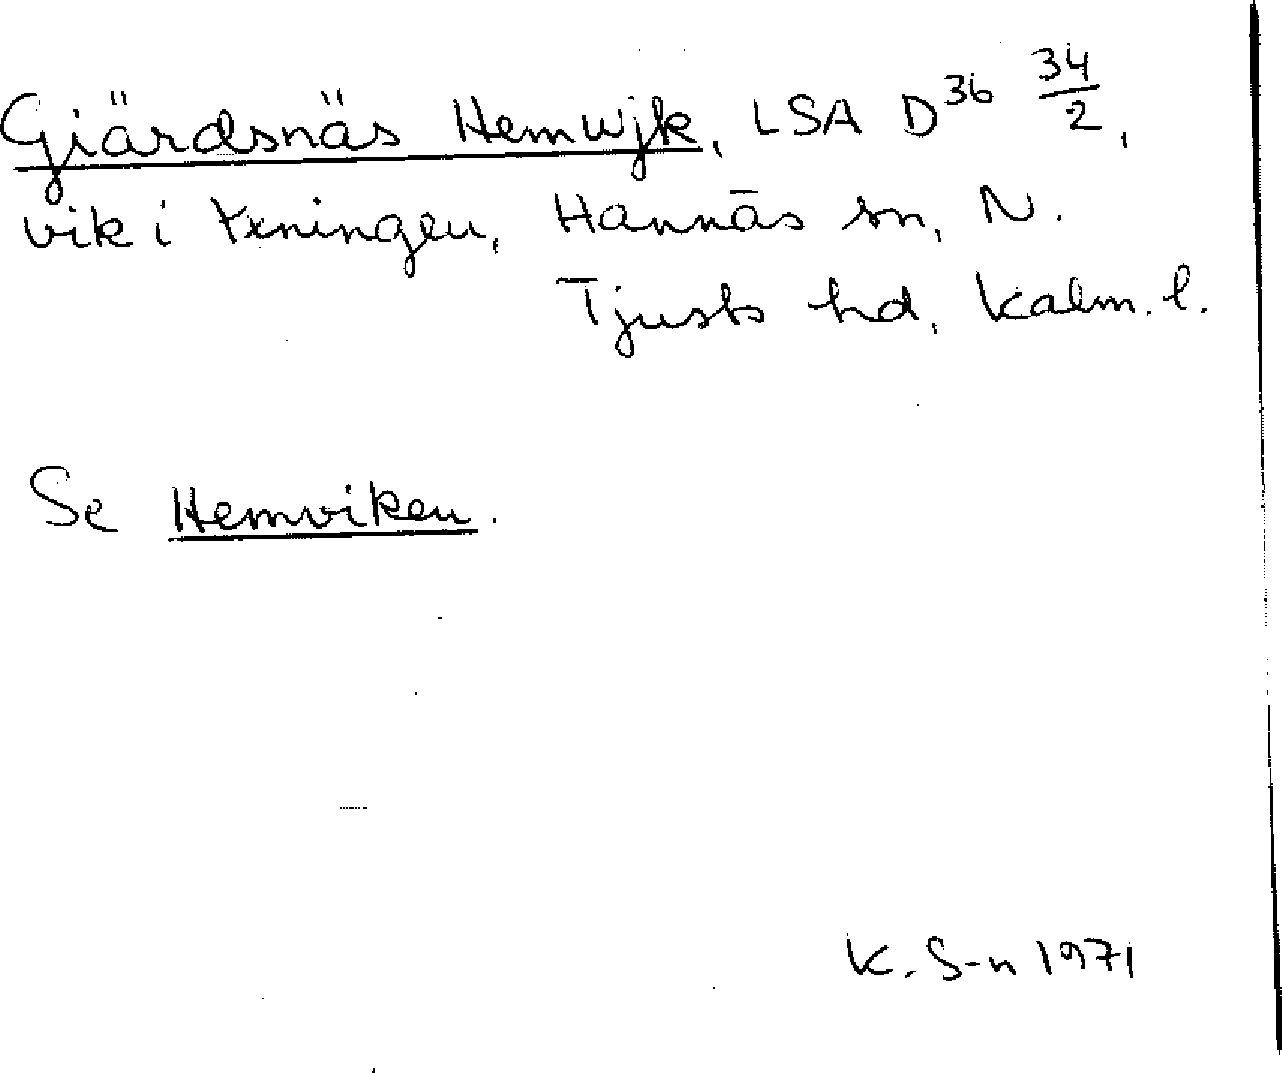 Giärdsnäs Hemwjk, LSA D36 34/2,
vik i Yxningen, Hannäs sn, N.
Tjusts hd, Kalm. l.
Se Hemviken.
K. S-n 1971